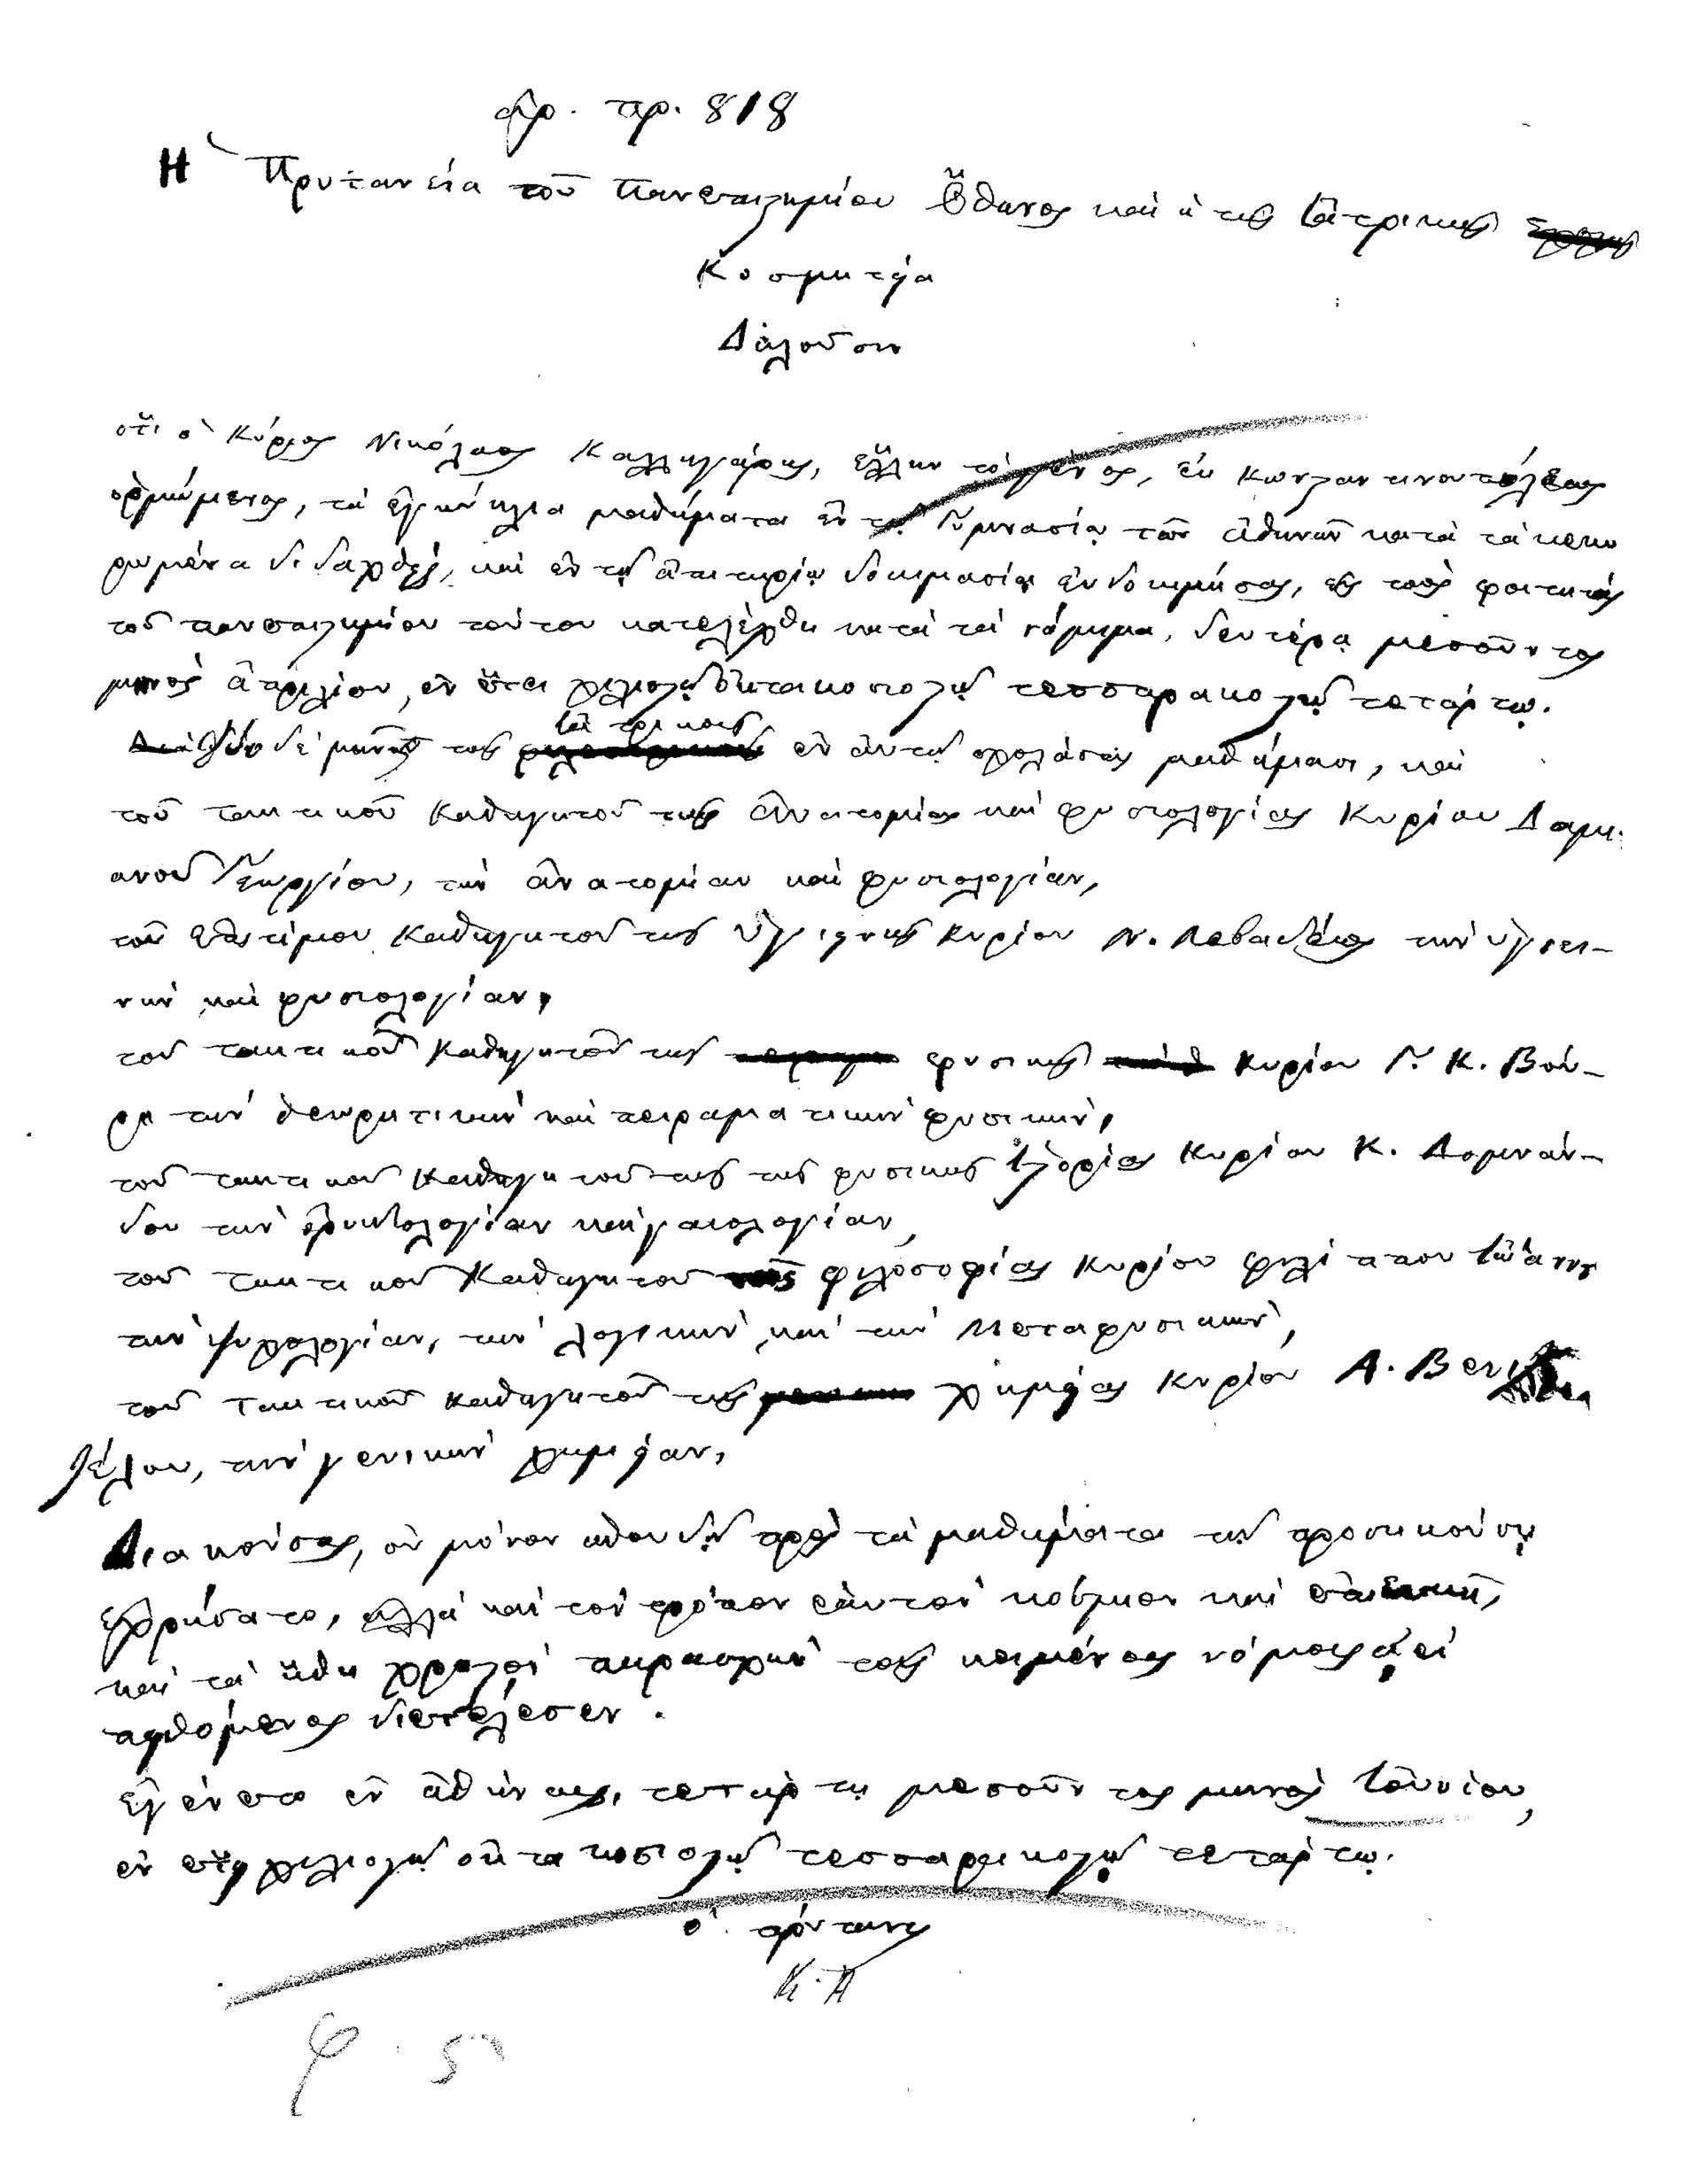 ἀρ. πρ. 818
Ἡ Πρυτανεία τοῦ Πανεπιστημίου Ὄθωνος καὶ ἡ τῆς Ἰατρικῆς
Κοσμητεία
Δηλοῦσιν
ὅτι ὁ Κύριος Νικόλαος Καλλιγάρης, ἕλλην τὸ γένος, ἐκ Κωνσταντινουπόλεως
ὁρμώμενος, τὰ ἐγκύκλια μαθήματα ἐν τῷ Γυμνασίῳ τῶν Ἀθηνῶν κατὰ τὰ κεκυ
ρωμένα διδαχθεὶς, καὶ ἐν τῇ ἀπιτηρίῳ δοκιμασίᾳ εὐδοκιμήσας, εἰς τοὺς φοιτητὰς
τοῦ πανεπιστημίου τούτου κατελέχθη κατὰ τὰ νόμιμα, δευτέρᾳ μεσοῦντος
μηνὸς ἀπριλίου, ἐν ἔτει χιλιοστῷ ὀκτακοσιοστῷ τεσσαρακοστῷ τετάρτῳ.
δὲ μῆνας τοῖς ἰατρικοῖς ἐν αὐτῷ σχολάσας μαθήμασι, καὶ
τοῦ τακτικοῦ Καθηγητοῦ τῆς Ἀνατομίας καὶ φυσιολογίας Κυρίου Δαμι-
ανοῦ Γεωργίου, τὴν ἀνατομίαν καὶ φυσιολογίαν,
τοῦ ἐπιτίμου Καθηγητοῦ τῆς ὑγιεινῆς Κυρίου Ν. Λεβαδέως τὴν ὑγιει-
νὴν καὶ φυσιολογίαν,
τοῦ τακτικοῦ Καθηγητοῦ τῆς φυσικῆς Κυρίου Γ. Κ. Βού-
ρη τὴν θεωρητικὴν καὶ πειραματικὴν φυσικὴν,
τοῦ τακτικοῦ Καθηγητοῦ τῆς τῆς φυσικῆς Ἱστορίας Κυρίου Κ. Δομνάν-
δου τὴν ὀρυκτολογίαν καὶ γαιολογίαν,
τοῦ τακτικοῦ Καθηγητοῦ τῆς φιλοσοφίας Κυρίου Φιλίππου Ἰωάννου
τὴν ψυχολογίαν, τὴν λογικὴν καὶ τὴν Μεταφυσικὴν,
τοῦ Τακτικοῦ Καθηγητοῦ τῆς χημείας Κυρίου Α. Βενι
ζέλου, τὴν γενικὴν χημείαν,
Διακούσας, οὐ μόνον σπουδῇ πρὸς τὰ μαθήματα τῇ προσηκούσῃ
ἐχρήσατο, ἀλλὰ καὶ τὸν τρόπον ἑαυτὸν κόσμιον καὶ ἐπιεικῆ,
καὶ τὰ ἤθη χρηστὸν παρασχὼν τοῖς κειμένοις νόμοις ἀεὶ
πειθόμενος διετέλεσεν.
Ἐγένετο ἐν ἀθήναις, τετάρτῃ μεσοῦντος μηνὸς Ἰουνίου,
ἐν ἔτει χιλιοστῷ ὀκτακοσιοστῷ τεσσαρακοστῷ τετάρτῳ.
ὁ πρύτανις